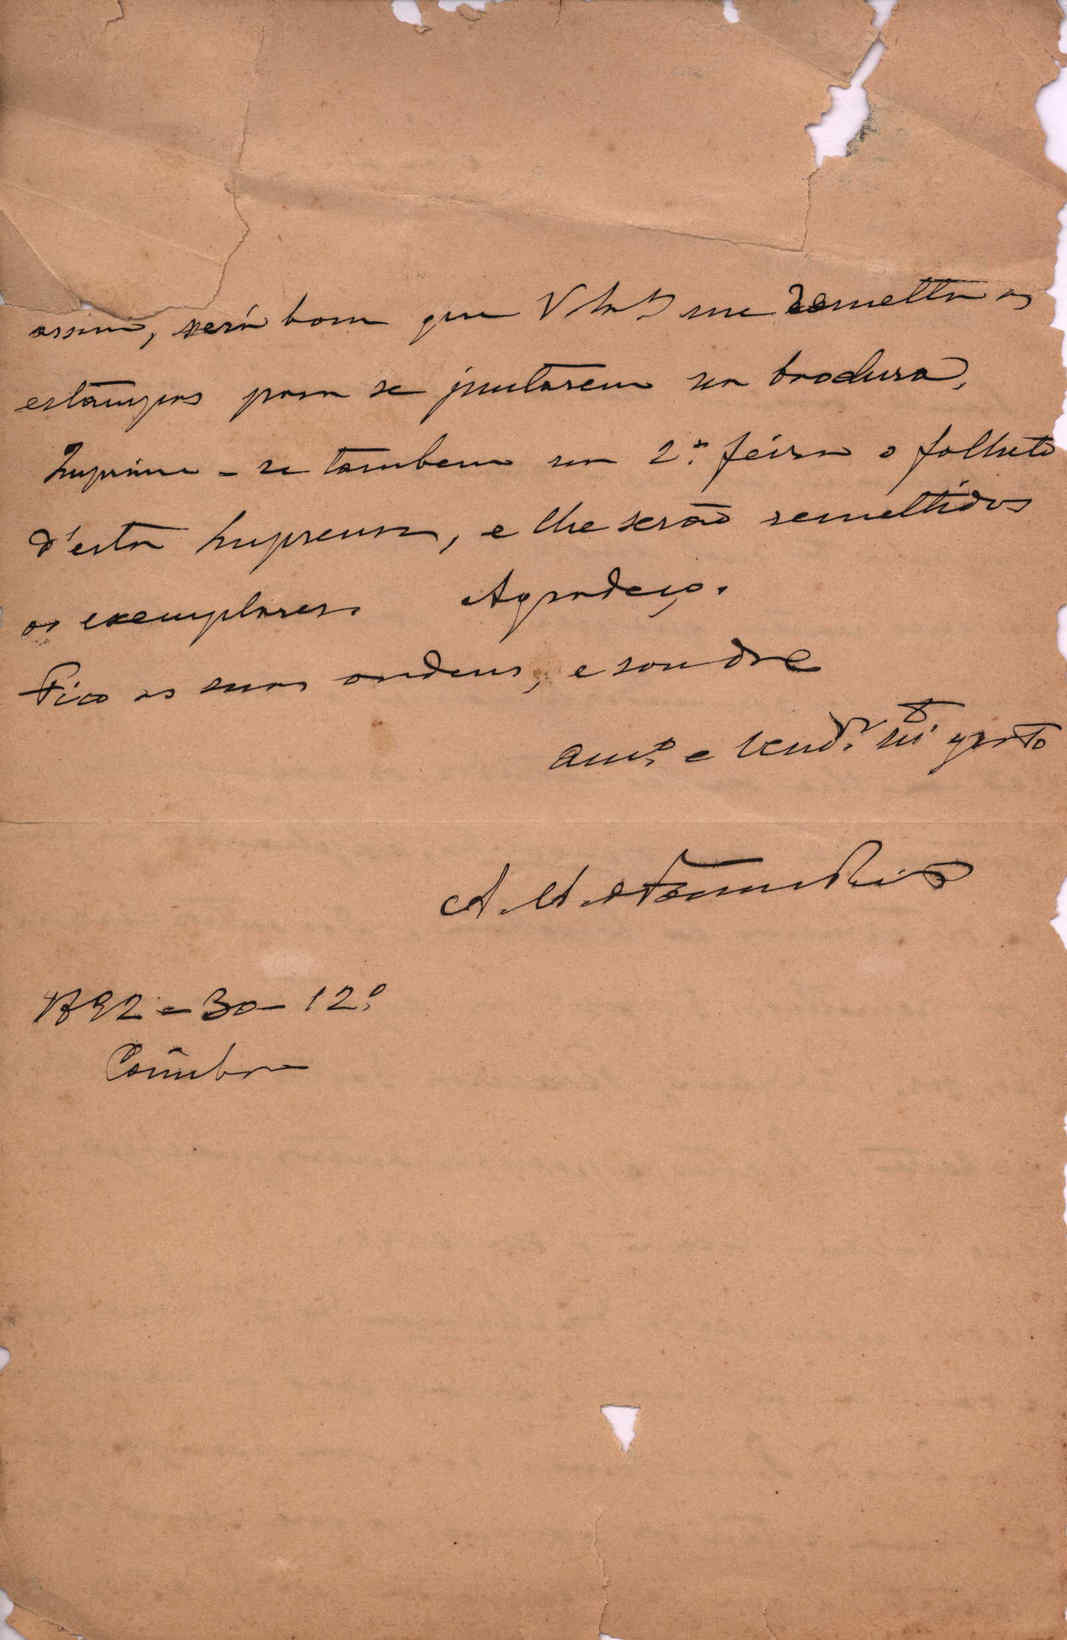 assim, será bom que V me remetta as
estampas para se juntarem na brochura.
Imprime-se tambem na 2.ª feira o folheto
d'esta Imprensa, e lhe serão remettidos
os exemplares. Agradeço.
Fico as suas ordens, e sou de
am.º e Ven.dor m.to grato
A. A.
1892-30-12º
Coimbra